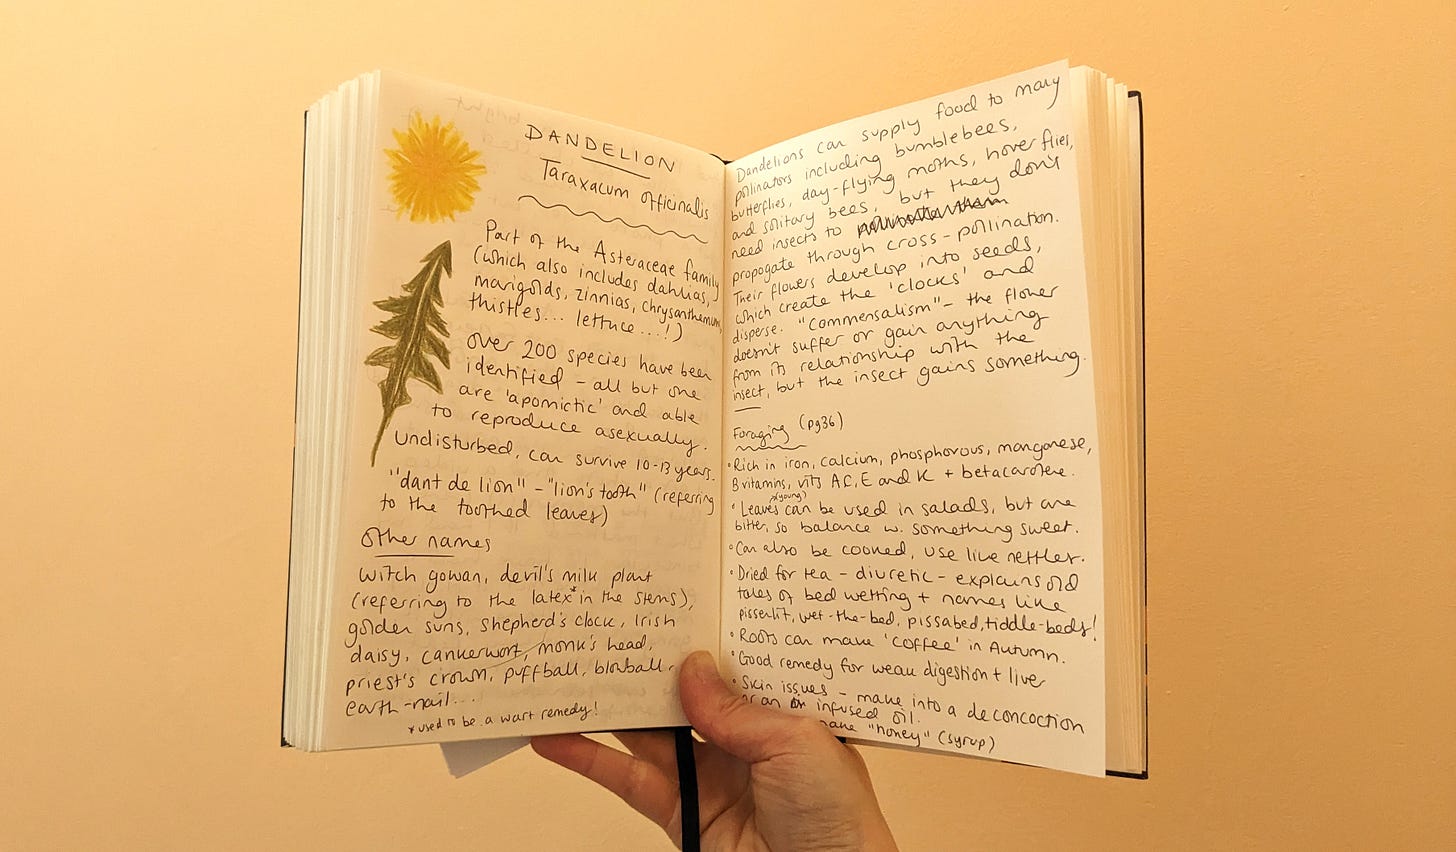 DANDELION
Taraxacum officinalis
Part of the Asteraceae family
(which also includes dahlias,
marigolds, zinnias, chrysanthemums,
thistles... lettuce...!)
Over 200 species have been
identified – all but one
are 'apomictic' and able
to reproduce asexually.
Undisturbed, can survive 10-13 years.
"dant de lion" – "lion's tooth" (referring
to the toothed leaves)
Other names
Witch gowan, devil's milk plant
(referring to the latex* in the stems),
golden suns, shepherd's clock, Irish
daisy, cankerwort, monk's head,
priest's crown, puffball, blowball,
earth-nail...
*used to be a wart remedy!
Dandelions can supply food to many
pollinators including bumblebees,
butterflies, day-flying moths, hoverflies,
and solitary bees, but they don't
need insects to
propogate through cross-pollination.
Their flowers develop into seeds,
which create the 'clocks' and
disperse. "Commensalism" – the flower
doesn't suffer or gain anything
from its relationship with the
insect, but the insect gains something.
Foraging (pg36)
• Rich in iron, calcium, phosphorous, manganese,
B vitamins, vits A C, E and K + betacarotene.
(young)
• Leaves can be used in salads, but are
bitter, so balance w. something sweet.
• Can also be cooked, use like nettles.
• Dried for tea – diuretic – explains old
tales of bed wetting + names like
pissenlit, wet-the-bed, pissabed, tiddle-beds!
• Roots can make 'coffee' in Autumn.
• Good remedy for weak digestion + liver
• Skin issues – make into a deconcoction
or an infused oil.
make "honey" (syrup)